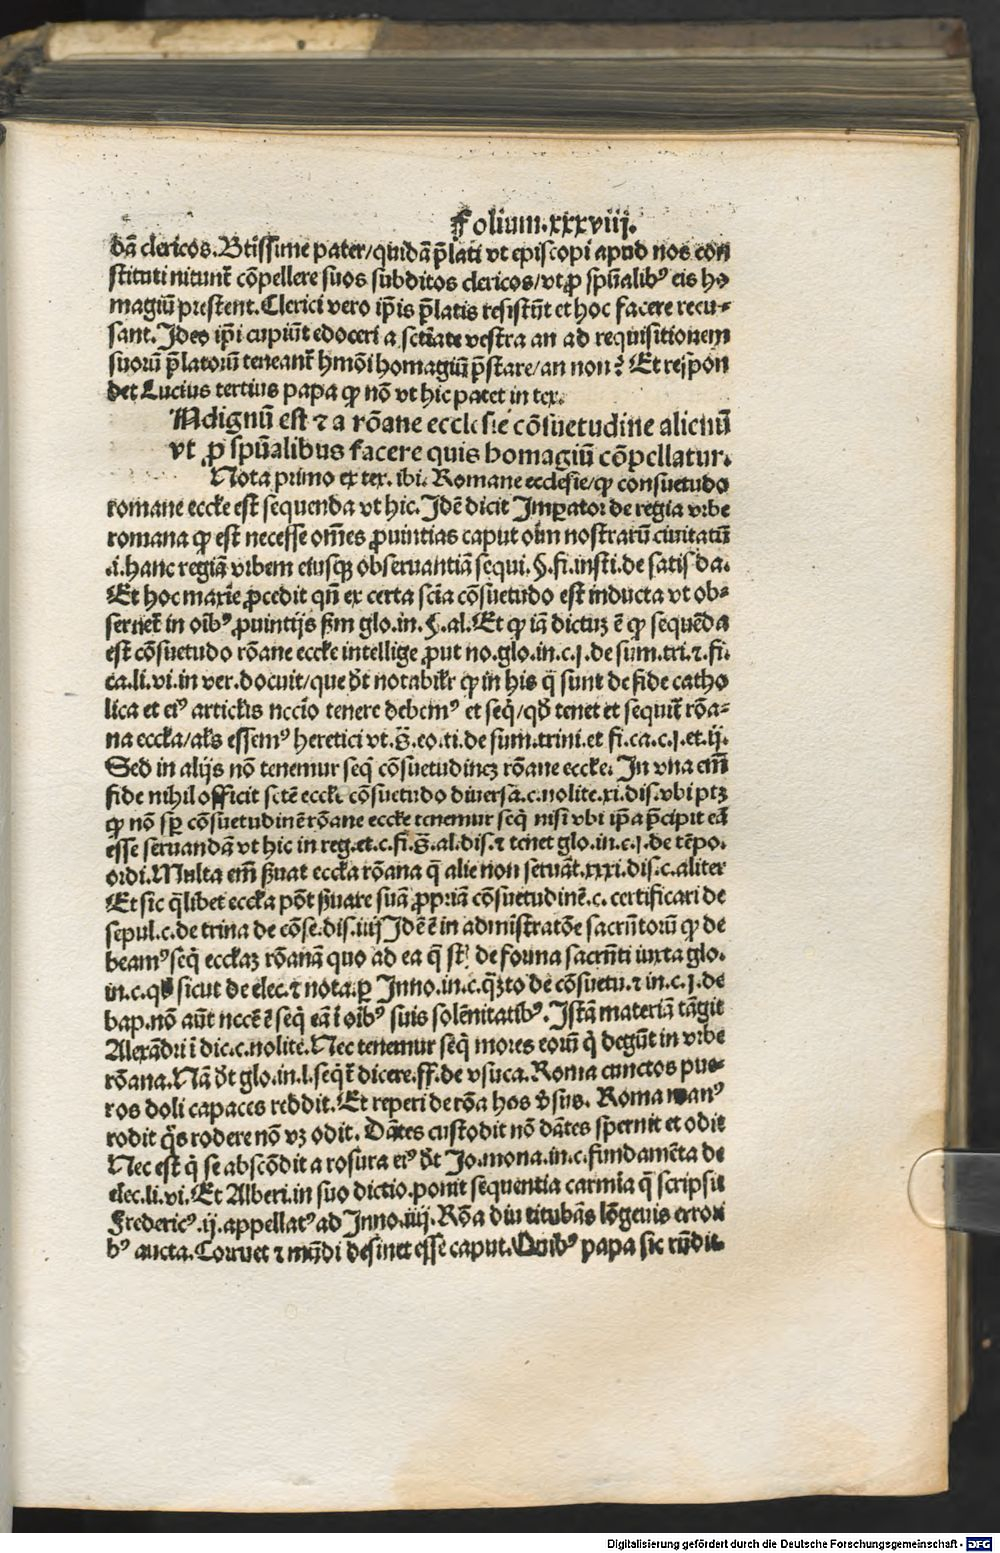 Folium.xxxviij.
dā clericos. Btissime pater/quidā p̄lati vt episcopi apud nos con
stituti nitunt̄ cōpellere suos subditos clericos/vt ꝓ sp̄ualibꝰ eis ho
magiū prestent. Clerici vero ip̄is p̄latis resistūt et hoc facere recu⸗
sant. Ideo ip̄i cupiūt edoceri a sctītate vestra an ad requisitionem
suorū p̄latorū teneant̄ hmōi homagiū p̄stare/an non? Et respon
det Lucius tertius papa ꝙ nō vt hic patet in tex.
Indignū est ⁊ a rōane ecclesie cōsuetudine alienū
vt ꝓ sp̄ualibus facere quis homagiū cōpellatur.
Nota primo ex tex. ibi. Romane ecclesie/ꝙ consuetudo
romane eccłe est sequenda vt hic. Idē dicit Imp̄ator de regia vrbe
romana ꝙ est necesse om̄es ꝓuintias caput oīm nostrarū ciuitatū
.i. hanc regiā vrbem eiusqꝫ obseruantiā sequi. §. fi. insti. de satisda.
Et hoc maxīe ꝓcedit qn̄ ex certa sciā cōsuetudo est inducta vt ob⸗
seruet̄ in oībꝰ ꝓuintijs s̄m glo. in. §. al. Et ꝙ iā dictuꝫ ē ꝙ sequēda
est cōsuetudo rōane eccłe intellige ꝓut no. glo. in. c. j. de sum. tri. ⁊. fi.
ca. li. vi. in ver. docuit/que d̄t notabilr̄ ꝙ in his q̄ sunt de fide catho
lica et eiꝰ articłis nccīo tenere debemꝰ et seq̄/qd̄ tenet et sequit̄ rōa⸗
na eccłia/ałs essemꝰ heretici vt. s̄. eo. ti. de sum. trini. et fi. ca. c. j. et. ij.
Sed in alijs nō tenemur seq̄ cōsuetudineꝫ rōane eccłe. In vna em̄
fide nihil officit sctē eccłe cōsuetudo diuersa. c. nolite. xi. dis. vbi ptꝫ
ꝙ nō sp̄ cōsuetudinē rōane eccłe tenemur seq̄ nisi vbi ip̄a p̄cipit eā
esse seruandā vt hic in reg. et. c. fi. s̄. al. dis. ⁊ tenet glo. in. c. j. de tēpo.
ordi. Multa em̄ s̄uat eccłia rōana q̄ alie non seruāt. xxxi. dis. c. aliter
Et sic q̄libet eccłia pōt s̄uare suā ꝓpriā cōsuetudinē. c. certificari de
sepul. c. de trina de cōse. dis. iiij Idē ē in administratōe sacrn̄torū ꝙ de
beamꝰ seq̄ eccłiaꝫ rōanā quo ad ea q̄ st̄ de forma sacrn̄ti iuxta glo.
in. c. qđ sicut de elec. ⁊ nota. ꝑ Inno. in. c. q̄ꝫto de cōsuetu. ⁊ in. c. j. de
bap. nō aūt nccē ē seq̄ eā ī oībꝰ suis solēnitatibꝰ. Istā materiā tāgit
Alexādri ī dic. c. nolite. Nec tenemur seq̄ mores eorū q̄ degūt in vrbe
rōana. Nā d̄t glo. in. l. seq̄t̄ dicere. ff. de vsuca. Roma cunctos pue⸗
ros doli capaces reddit. Et reperi de rōa hos v̄sus. Roma manꝰ
rodit q̄s rodere nō vꝫ odit. Dātes custodit nō dātes spernit et odit
Nec est q̄ se abscōdit a rosura eiꝰ d̄t Jo. mona. in. c. fundamēta de
elec. li. vi. Et Alberi. in suo dictio. ponit sequentia carmīa q̄ scripsit
Fredericꝰ. ij. appellatꝰ ad Inno. iiij. Rōa diu titubās lōgeuis errori
bꝰ aucta. Corruet ⁊ mūdi desinet esse caput. Quibꝰ papa sic rn̄dit.
Digitalisierung gefördert durch die Deutsche Forschungsgemeinschaft - DFG